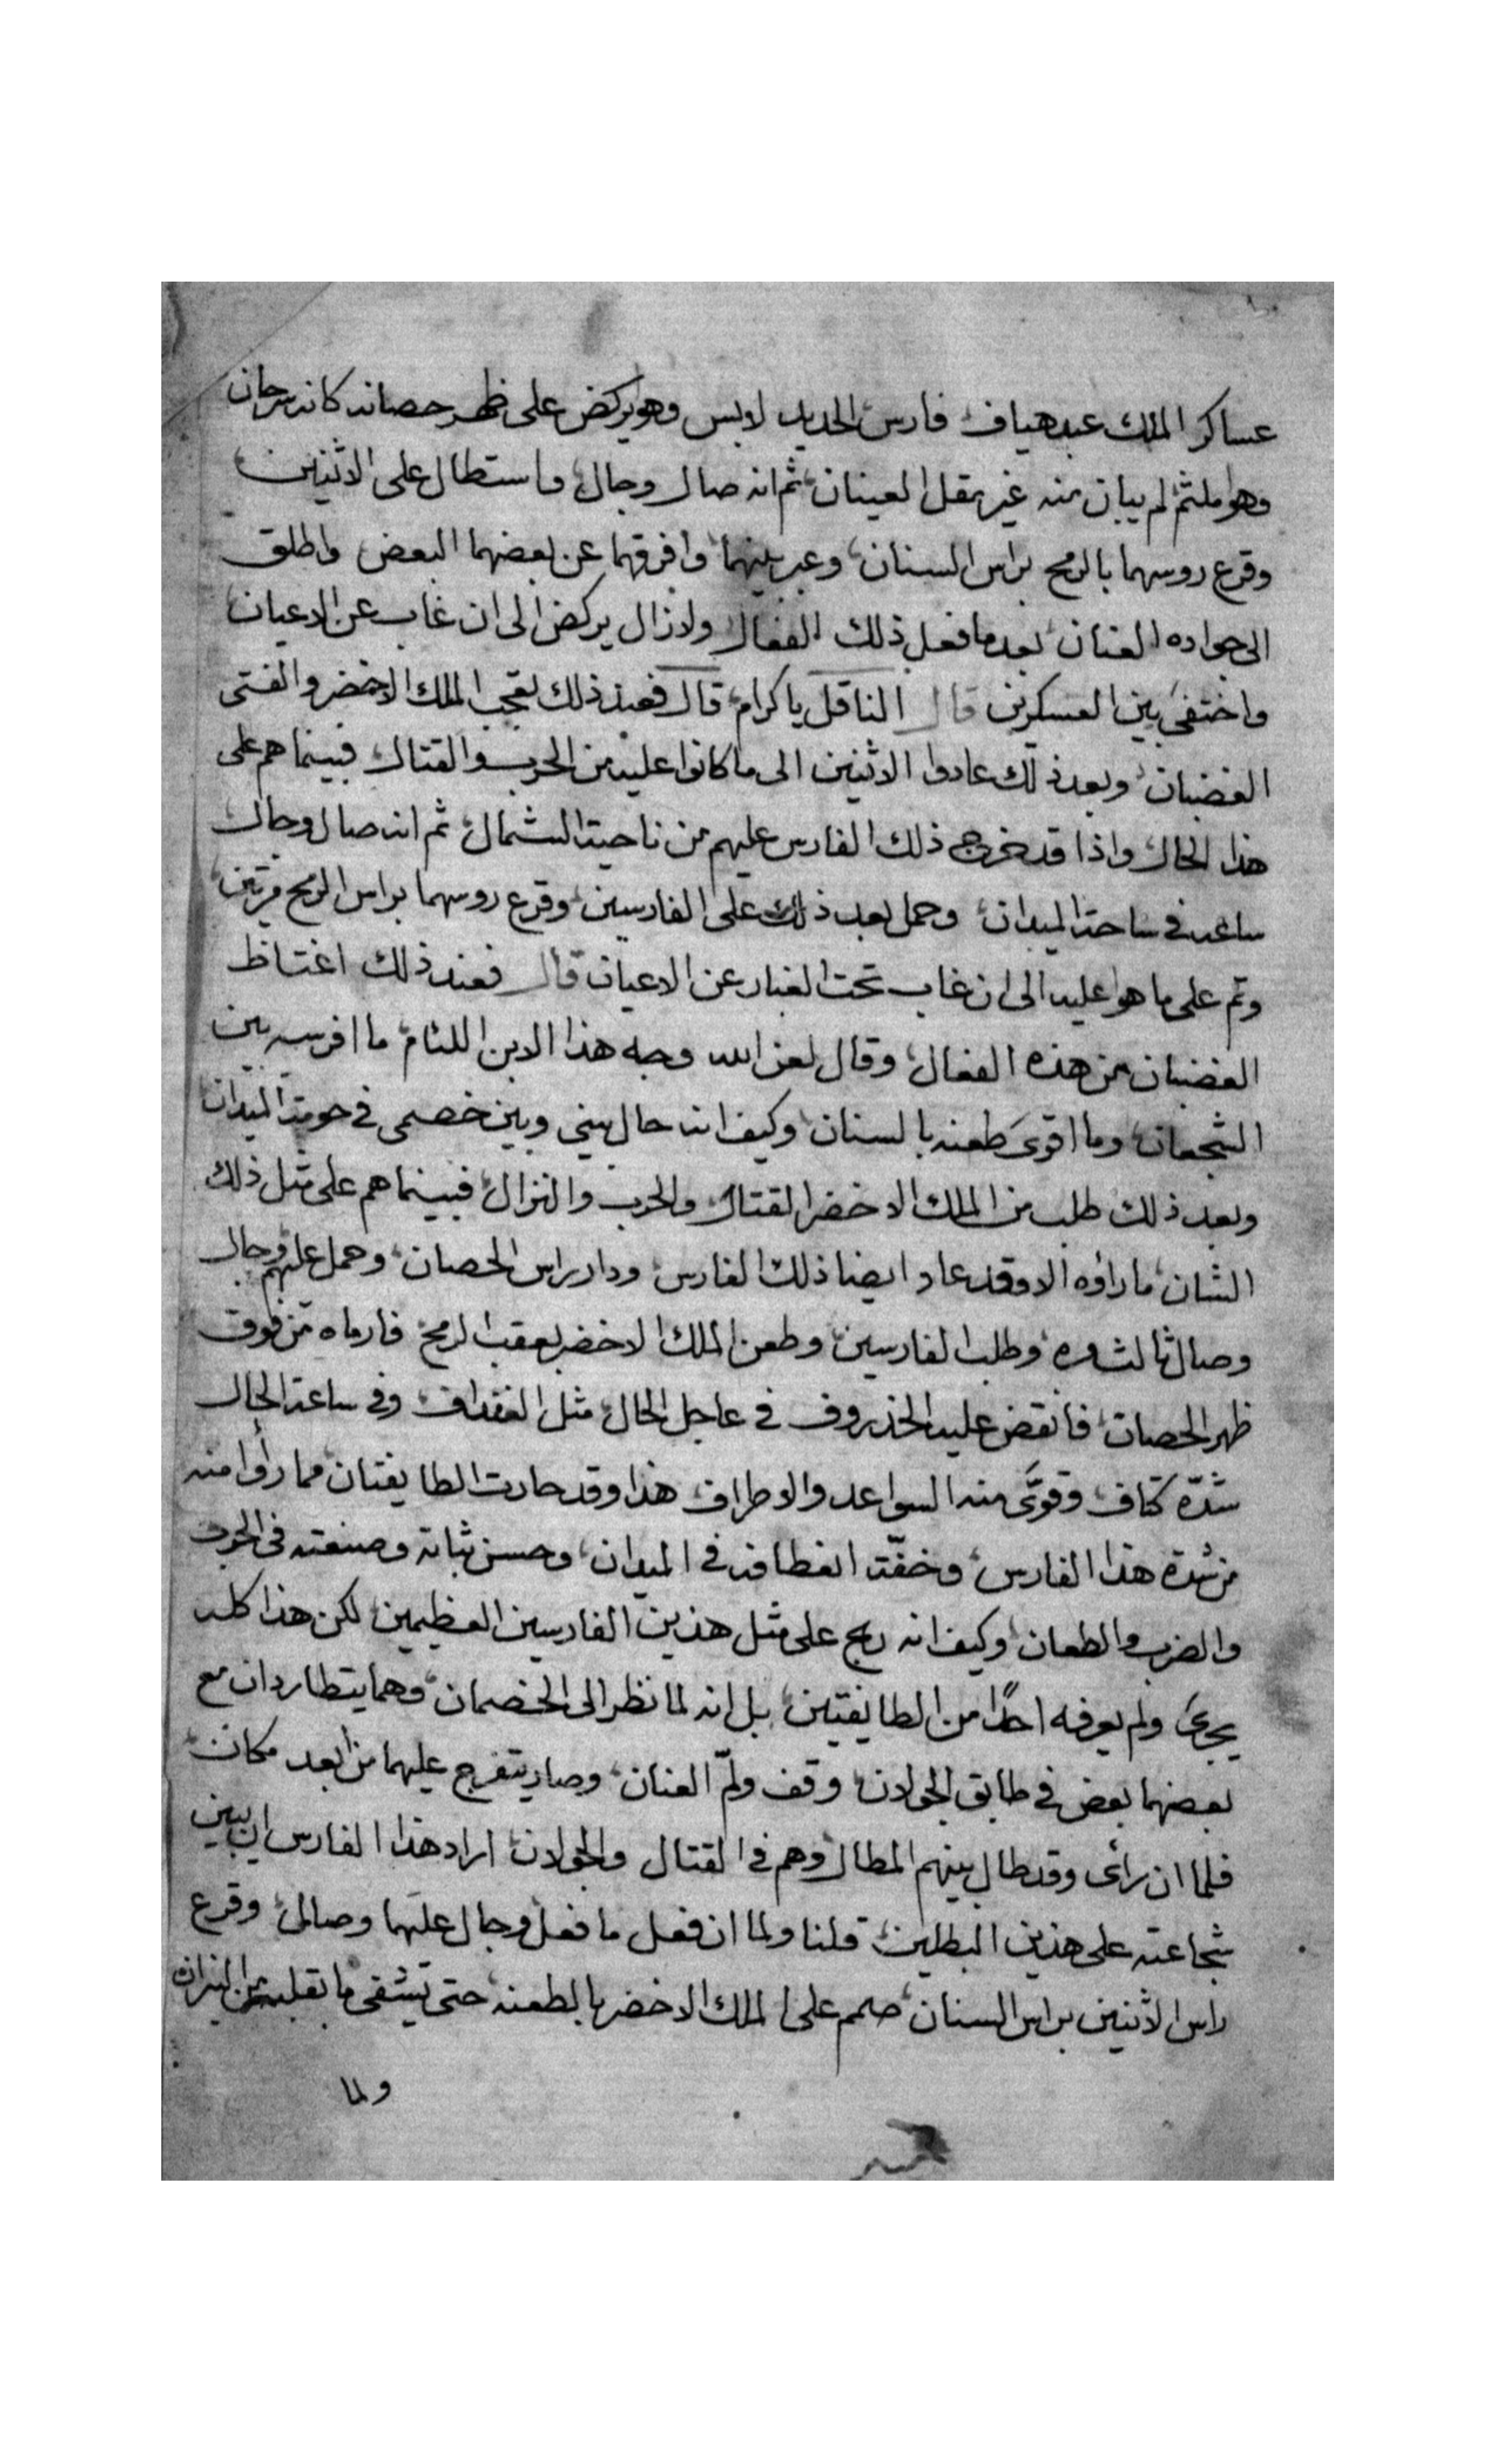 عساكر الملك عبد هياف فارس الحديد لابس وهو يركض على ظهر حصانه كانه سرحان
وهوا ملثم لم يبان منه غير مقل العينان ثم انه صال وجال واستطال على الاثنين
وقرع روسهما بالرمح براس السنان وعبر بينهما وافرقهما عن بعضهما البعض واطلق
الى جواده العنان بعدما فعل ذلك الفعال ولازال يركض الى ان غاب عن الاعيان
واختفى بين العسكرين قال الناقل يا كرام قال فعند ذلك تعجب الملك الاخضر والفتى
الغضبان وبعد ذلك عادوا الاثنين الى ما كانوا عليه من الحرب والقتال فبينما هم على
هذا الحال واذا قد خرج ذلك الفارس عليهم من ناحية الشمال ثم انه صال وجال
ساعه في ساحة الميدان وحمل بعد ذلك على الفارسين وقرع روسهما براس الرمح مرتين
وتم على ما هوا عليه الى ان غاب تحت الغبار عن الاعيان قال فعند ذلك اغتاظ
الغضبان من هذه الفعال وقال لعن الله وجه هذا الابن اللئام ما افرسه بين
الشجعان وما اقوى طعنه بالسنان وكيف انه حال بيني وبين خصمي في حومة الميدان
وبعد ذلك طلب من الملك الاخضر القتال والحرب والنزال فبينما هم على مثل ذلك
الشان ما راؤه الا وقد عاد ايضا ذلك الفارس ودار براس الحصان وحمل عليهم وجال
وصال ثالث مره وطلب الفارسين وطعن الملك الاخضر بعقب الرمح فارماه من فوق
ظهر الحصان فانقض عليه الخذروف في عاجل الحال مثل الغداف وفي ساعة الحال
شدّه كتاف وقوّى منه السواعد والاطراف هذا وقد حارت الطايفتان مما رأوا منه
من شدة هذا الفارس وخفّة انعطافه في الميدان وحسن ثباته وصنعته في الحرب
والضرب والطعان وكيف انه ربح على مثل هذين الفارسين العظيمين لكن هذا كله
يجرى ولم يعرفه احدًا من الطايفتين بل انه لما نظر الى الخصمان وهما يتطاردان مع
بعضهما بعض في طابق الجولان وقف ولمّ العنان وصار يتفرج عليهما من ابعد مكان
فلما ان رأى وقد طال بينهم المطال وهم في القتال والجولان اراد هذا الفارس ان يبين
شجاعته على هذين البطلين قلنا ولما ان فعل ما فعل وجال عليهما وصال وقرع
راس الاثنين براس السنان صمم على الملك الاخضر بالطعنه حتى يشفى ما بقلبه من النيران
ولما